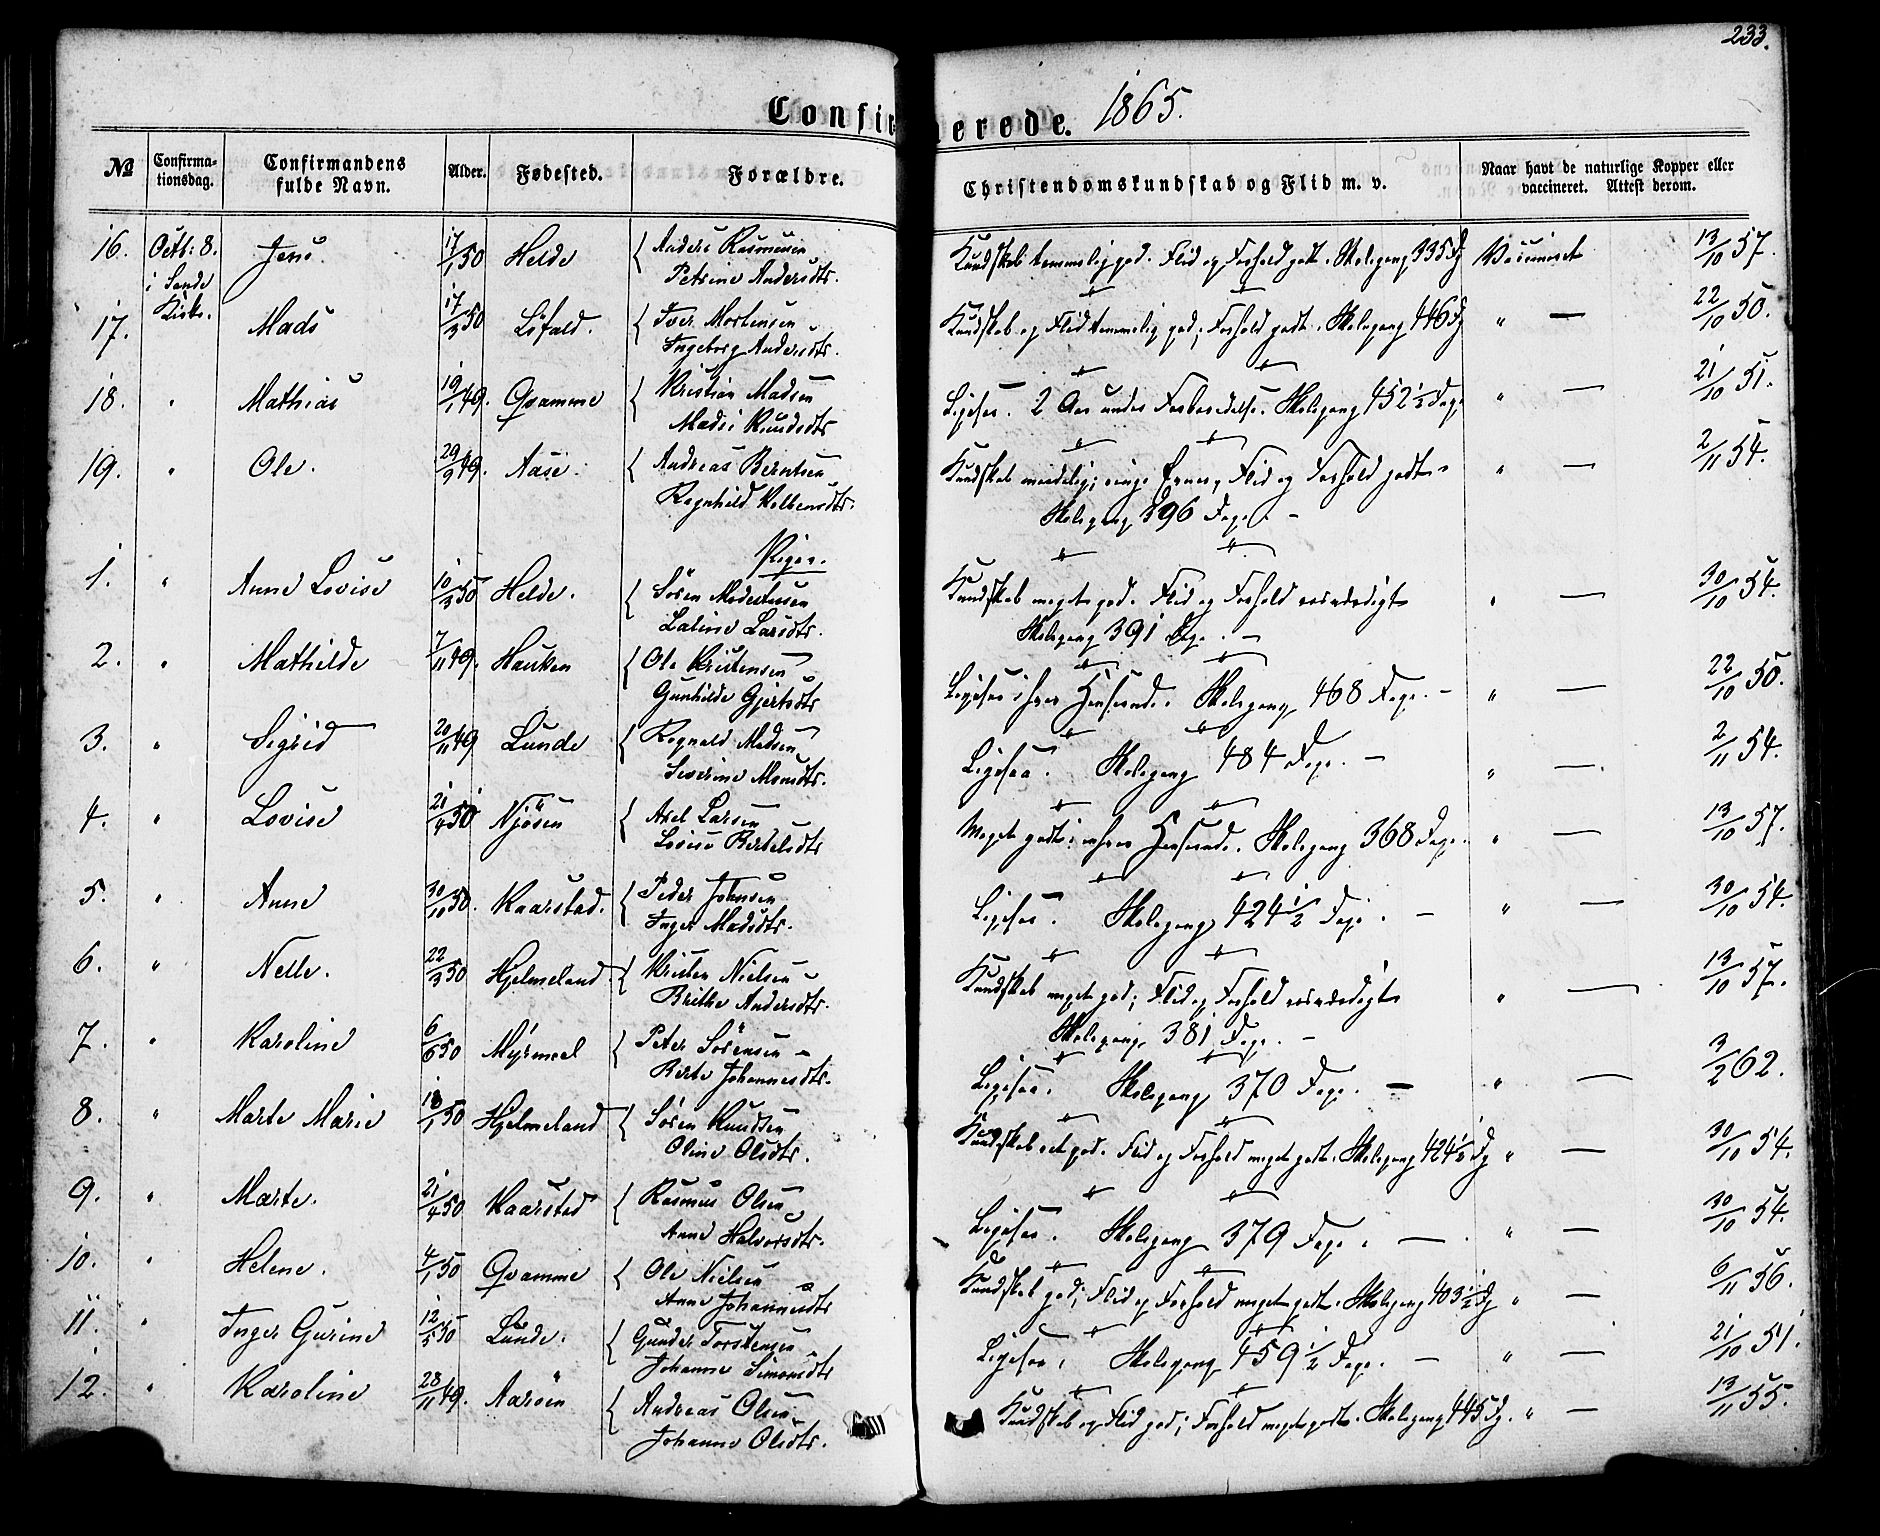 233.
Confirmerede. 1865.
№ Confirma-tionsdag. Confirmandens fulde Navn. Alder. Fødested. Forældre. Christendomskundskab og Flid m. v. Naar havt de naturlige Kopper eller vaccineret. Attest derom.
16. Octb: 8. i Sande Kirke. Jens 17/1 50 Helde { Anders Rasmussen Kundskab temmelig god. Flid og Forhold godt. Skolegang 335 Dg Vaccineret 13/10 57.
Petrine Andersdtr.
17. Mads 17/3 50 Løfald. { Iver Mortensen Kundskab og Flid temmelig god; Forhold godt. Skolegang 446 Dg " — 22/10 50.
Ingeborg Andersdtr.
18. " Mathias 19/1 49. Qvamme { Kristian Madsen Ligesaa. 2 Aar under Forberedelse. Skolegang 452 1/2 Dage " — 21/10 51.
Madsi Knudsdtr
19. " Ole. 29/3 49. Aase. { Andreas Berntsen Kundskab maadelig; ringe Evner, Flid og Forhold godt. " — 2/11 54.
Ragnhild Kolbensdtr. Skolegang 396 Dage. —
Piger.
1. " Anne Lovise 10/3 50 Helde. { Sören Modestussen Kundskab meget god. Flid og Forhold rosværdigt " — 30/10 54.
Laline Larsdtr. Skolegang 391 Dage. —
2. " Mathilde 7/11 49. Hauken { Ole Kristensen Ligesaa i hver Henseende. Skolegang 468 Dage. — " — 22/10 50.
Gunhilde Gjertsdtr
3. " Sigrid 20/11 49 Lunde { Ragnald Madsen Ligesaa. Skolegang 484 Dage. — " — 2/11 54.
Severine Monsdtr.
4. " Lovise 21/4 50 Njösen { Axel Larsen Meget godt i enhver Henseende. Skolegang 368 Dage. " — 13/10 57.
Lovise Bertelsdtr
5. " Anne 30/10 50. Kaarstad. { Peder Johnsen Ligesaa. Skolegang 424 1/2 Dage. — " — 30/10 54.
Inger Madsdtr.
6. " Nelle. 22/3 50 Hjelmeland. { Kristen Nielsen Kundskab meget god; Flid og Forhold rosværdigt " — 13/10 57.
Brithe Andersdtr. Skolegang 381 Dage. —
7. " Karoline 6/6 50 Myrmeel { Peter Sörensen Ligesaa. Skolegang 370 Dage. — " — 3/2 62.
Berte Johannesdtr.
8. " Marte Marie 18/1 50 Hjelmeland { Sören Knudsen Kundskab ret god. Flid og Forhold meget godt. Skolegang 424 1/2 Dg " — 30/10 54.
Oline Olsdtr.
9. " Marte. 21/4 50 Kaarstad { Rasmus Olsen Ligesaa. Skolegang 379 Dage. — " — 30/10 54.
Anne Halvorsdtr.
10. " Helene. 4/1 50 Qvamme { Ole Nielsen Kundskab god; Flid og Forhold meget godt. Skolegang 403 1/2 Dg " — 6/11 56.
Anne Johannesdtr
11. " Inger Gurine 12/5 50 Lunde. { Gunder Torstensen Ligesaa. Skolegang 459 1/2 Dage. — " — 21/10 51.
Johanne Simonsdtr
12. " Karoline 28/11 49. Aarsen { Andreas Olsen Kundskab og Flid god; Forhold meget godt. Skolegang 445 Dg. " — 13/11 55.
Johanne Olsdtr.